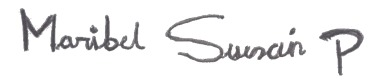 Maribel Susan P